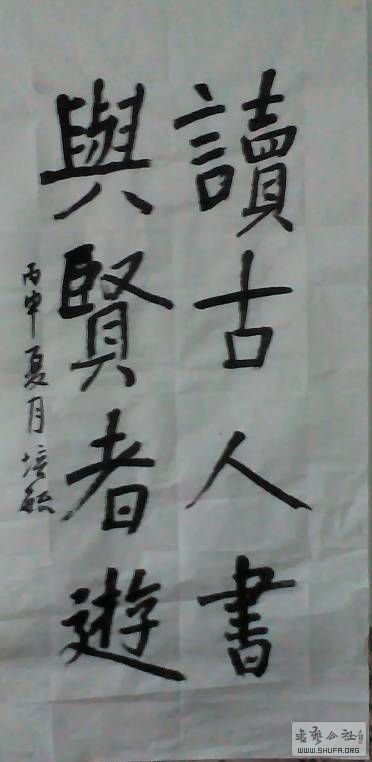 讀古人書
與賢者遊
丙申夏月培毓
书艺公社
WWW.SHUFA.ORG